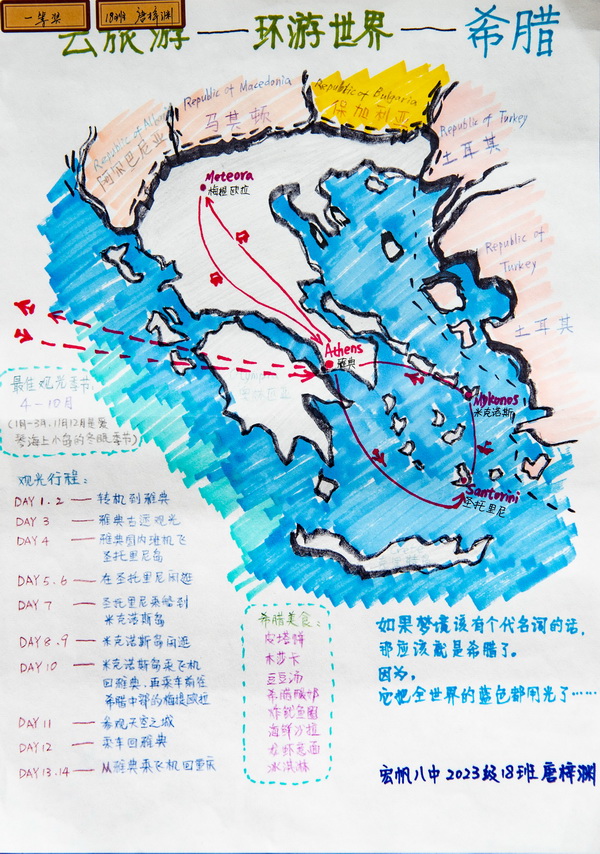 一等奖
18班 唐梓渊
云旅游——环游世界——希腊
Republic of Macedonia
马其顿
Republic of Bulgaria
保加利亚
阿尔巴尼亚
Republic of Turkey
土耳其
Republic of
Turkey
土耳其
Meteora
梅提欧拉
Athens
雅典
Mykonos
米克诺斯
Santorini
圣托里尼
最佳观光季节:
4-10月
观光行程:
DAY 1.2 —— 转机到雅典
DAY 3 —— 雅典古迹观光
DAY 4 —— 雅典国内港机飞
圣托里尼岛
DAY 5.6 —— 在圣托里尼闲逛
DAY 7 —— 圣托里尼乘船到
米克诺斯岛
DAY 8.9 —— 米克诺斯岛闲逛
DAY 10 —— 米克诺斯岛乘飞机
回雅典,再乘车前往
希腊中部的梅提欧拉
DAY 11 —— 参观天空之城
DAY 12 —— 乘车回雅典
DAY 13.14 —— 从雅典乘飞机回重庆
希腊美食:
皮塔饼
木莎卡
豆豆汤
希腊酸奶
炸鱿鱼圈
海鲜沙拉
冰淇淋
如果梦境该有个代名词的话,
那应该就是希腊了。
因为,
它把全世界的蓝色都用光了……
宏帆八中2023级18班唐梓渊